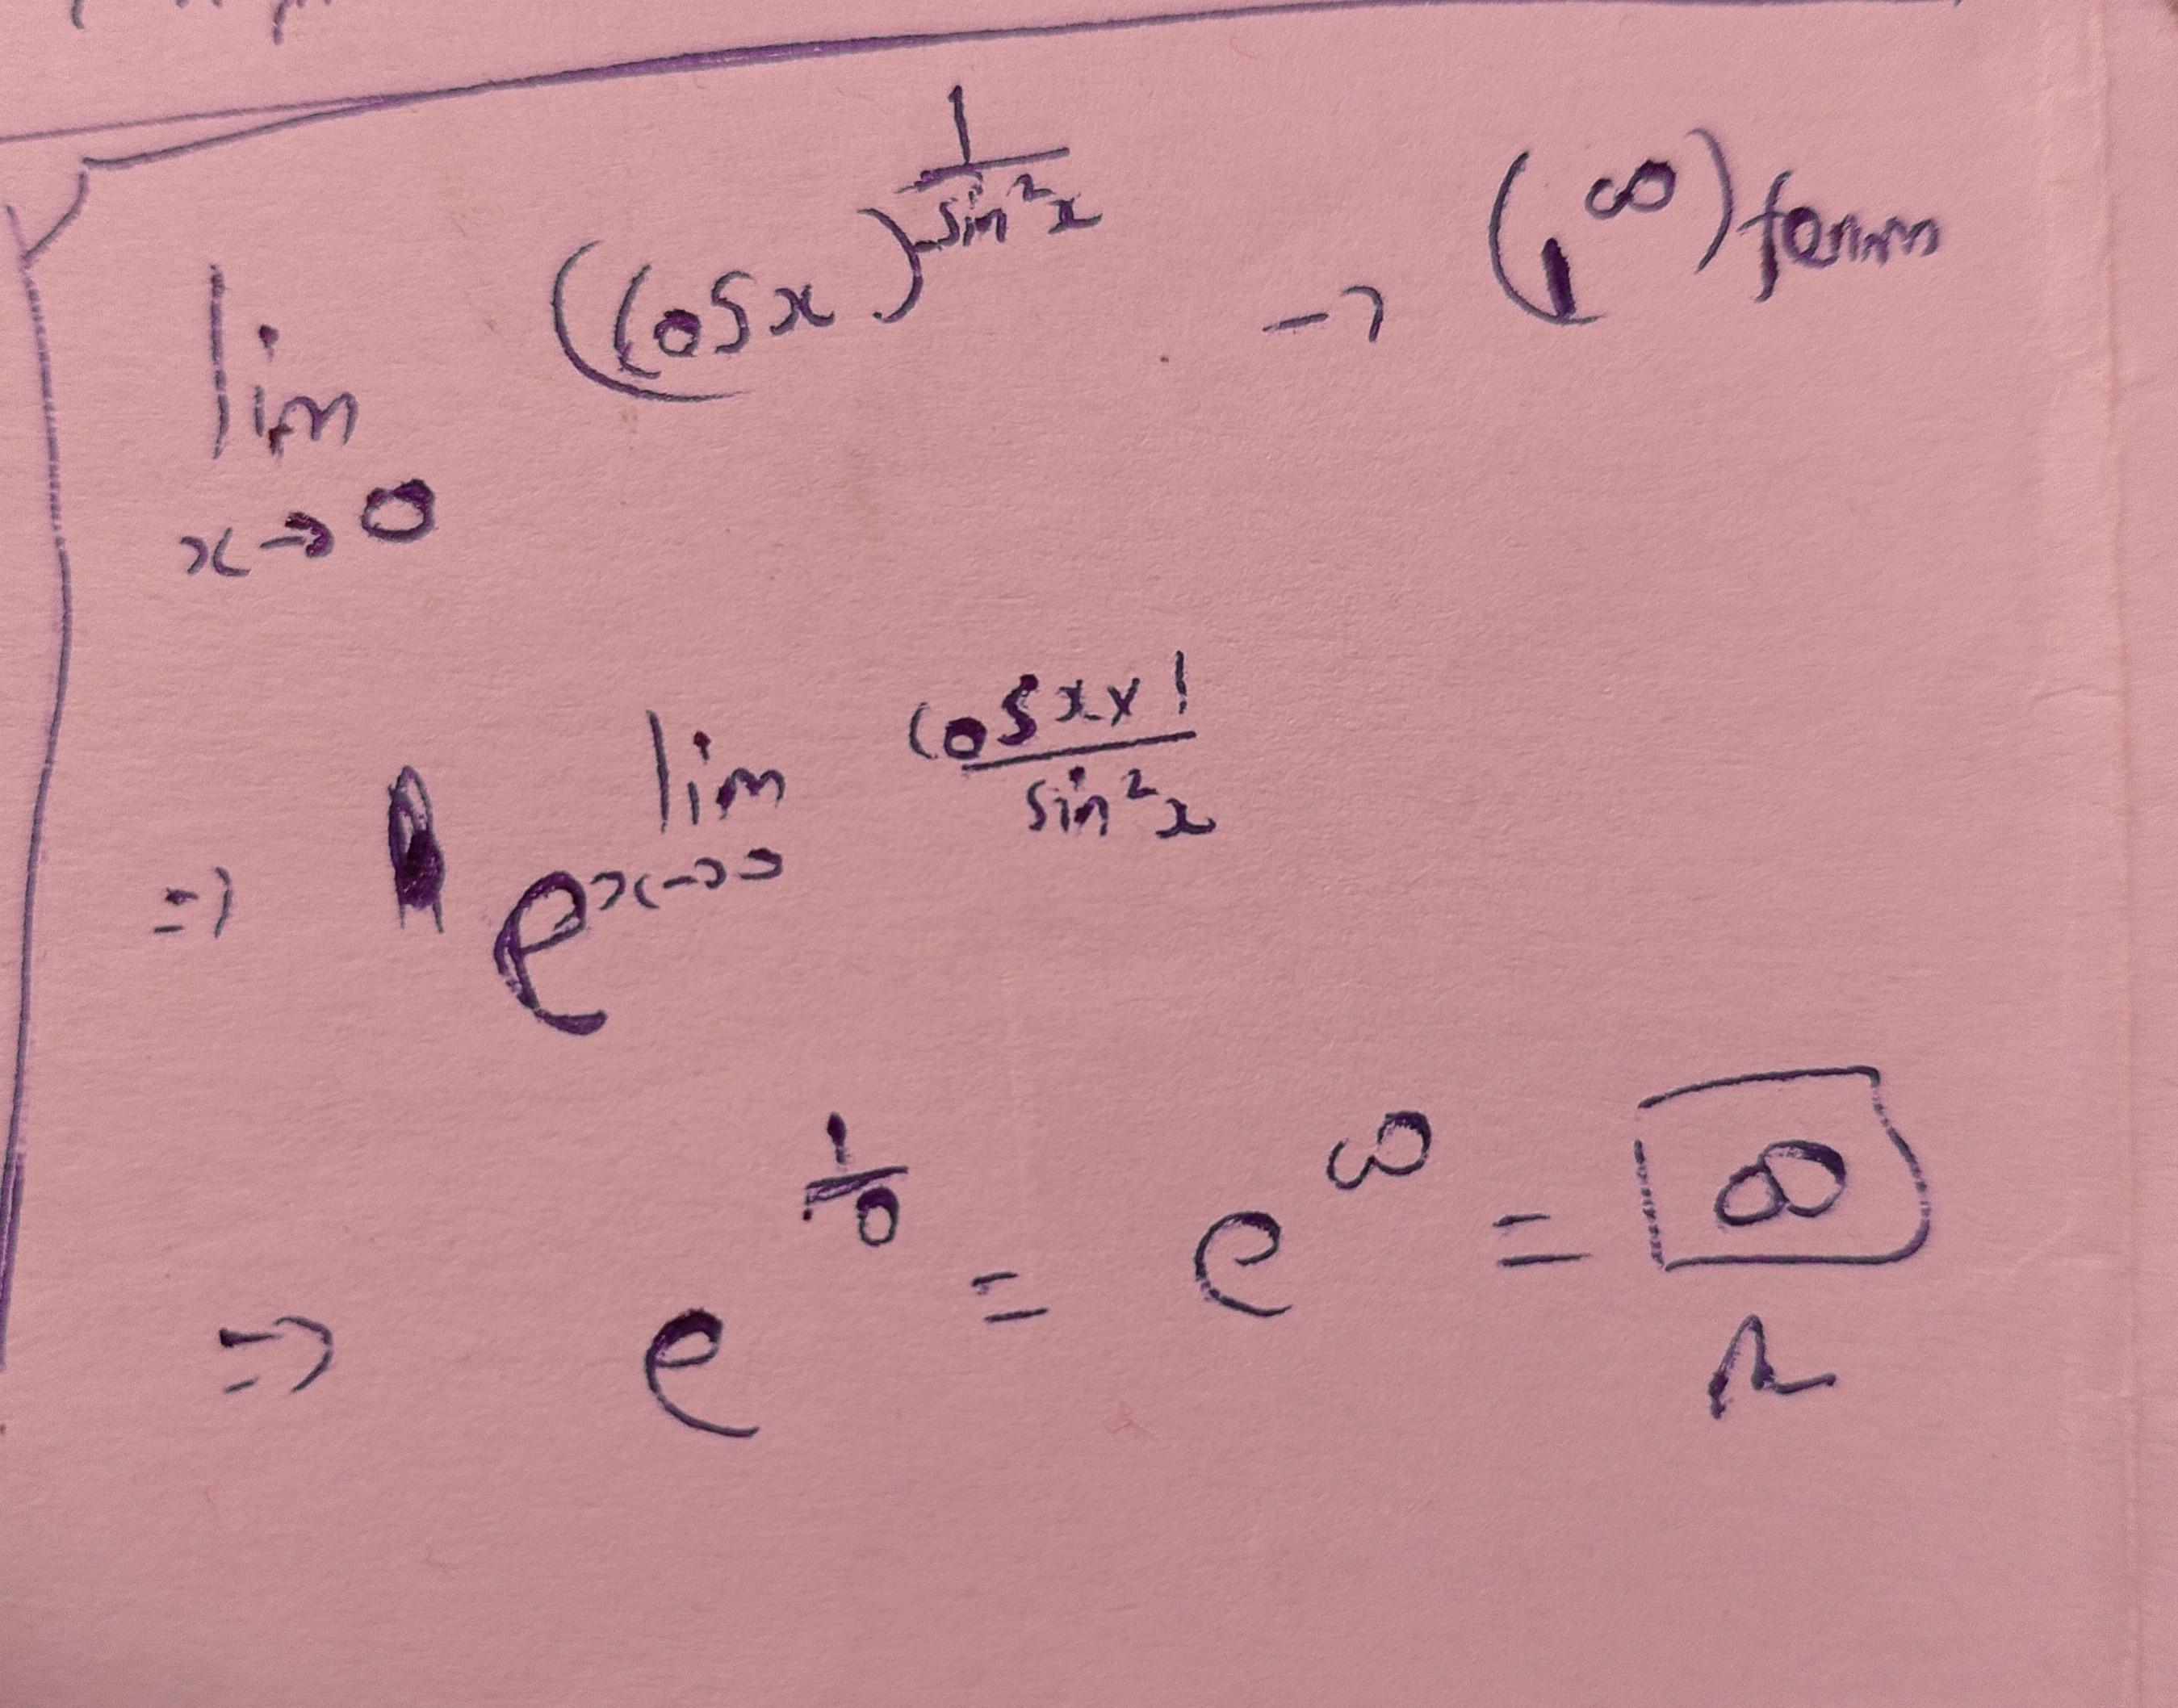 lim x→0 (cos x)^(1/sin²x) → (1^∞) form
⇒ e^(lim x→0 cos x × 1 / sin²x)
⇒ e^(1/0) = e^∞ = ∞